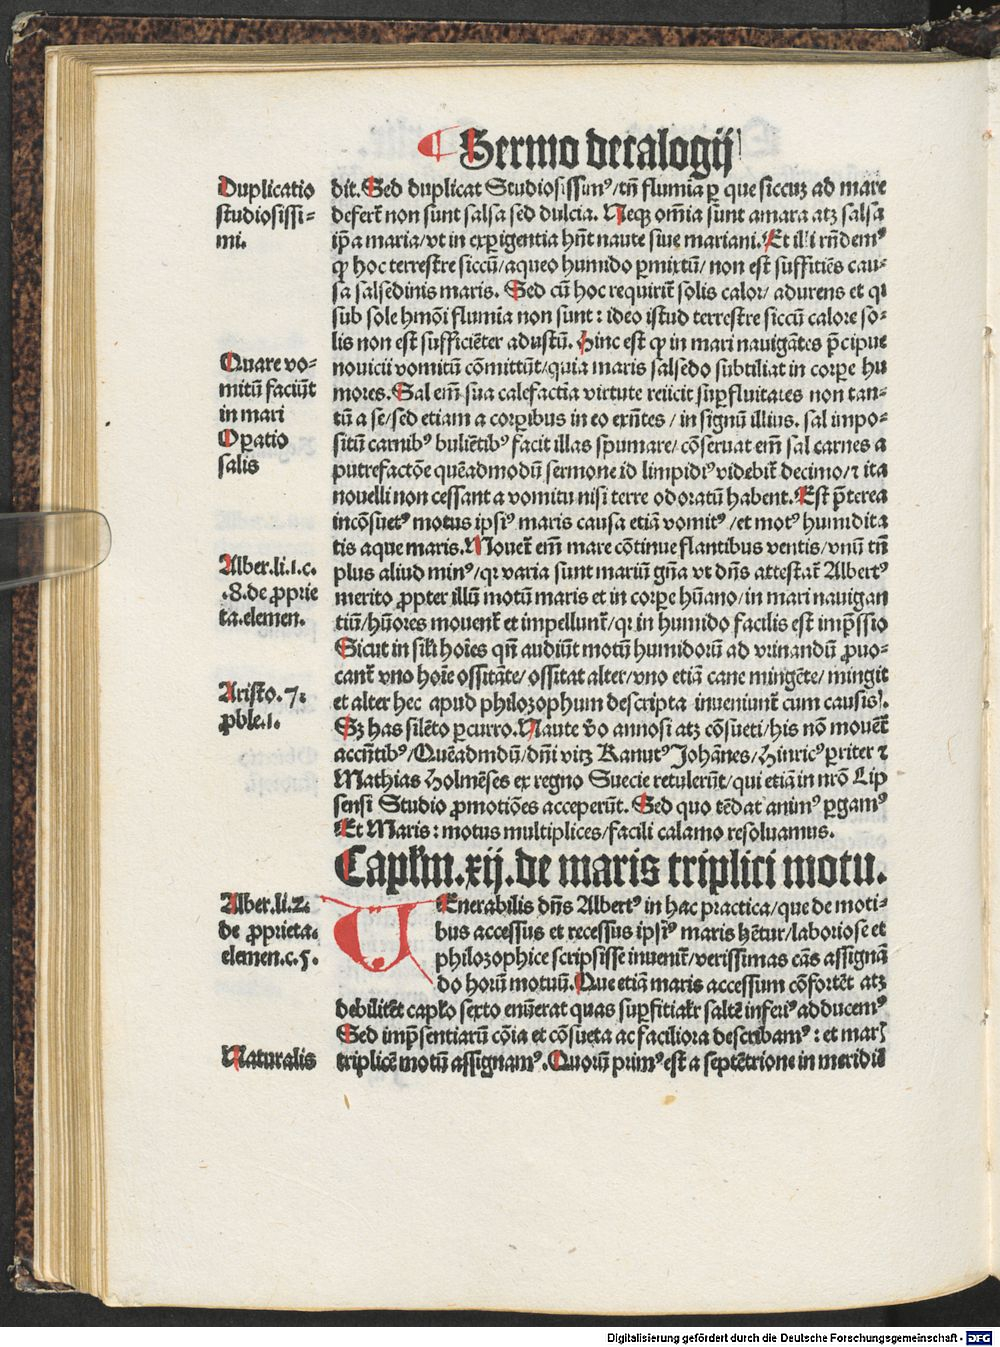 ¶ Sermo decalogij
Duplicatio
studiosissi⸗
mi.
dit. Sed duplicat Studiosissimꝰ/tñ flumīa ꝑ que siccuꝫ ad mare
deferṫ non sunt salsa sed dulcia. Neqꝫ om̄ia sunt amara atqꝫ salsa
ip̄a maria/vt in exꝑigentia hn̄t naute siue mariani. Et illi rn̄demꝰ
ꝙ hoc terrestre siccū/aqueo humido ꝑmixtū/ non est suffitiēs cau⸗
sa salsedinis maris. Sed cū hoc requiriť solis calor/ adurens et qꝛ
sub sole hmōi flumīa non sunt : ideo istud terrestre siccū calore so⸗
lis non est sufficiēter adustū. Hinc est ꝙ in mari nauigātes p̄cipue
Quare vo⸗
mitū faciūt
in mari
Oꝑatio
salis
nouicii vomitū cōmittūt/quia maris salsedo subtiliat in corꝑe hu
mores. Sal em̄ sua calefactia virtute reiicit suꝑfluitates non tan⸗
tū a se/sed etiam a corꝑibus in eo exn̄tes / in signū illius. sal impo⸗
sitū carnibꝰ buliētibꝰ facit illas spumare/ cōseruat em̄ sal carnes a
putrefactōe quēadmodū sermone id limpidiꝰ videbiť decimo/⁊ ita
nouelli non cessant a vomitu nisi terre odoratū habent. Est p̄terea
incōsuetꝰ motus ipsiꝰ maris causa etiā vomitꝰ /et motꝰ humidita
tis aque maris. Mouetʳ em̄ mare cōtinue flantibus ventis/vnū tn̄
Alber.li.1.c.
.8.de ꝓprie
ta.elemen.
plus aliud minꝰ/qꝛ varia sunt mariū gn̄a vt dn̄s attestať Albertꝰ
merito ꝓpter illū motū maris et in corꝑe hūano/in mari nauigan
tiū/hūores mouenť et impellunť/qꝛ in humido facilis est imp̄ssio
Sicut in sil̄i hoīes qn̄ audiūt motū humidorū ad vrinandū ꝓuo⸗
canť vno hoīe ossitāte/ossitat alter/vno etiā cane mingēte/mingit
Aristo. 7.
ꝓble.1.
et alter hec apud philozophum descripta inueniunť cum causis.
Sꝫ has silēto ꝑcurro. Naute v̄o annosi atqꝫ cōsueti/his nō mouēť
accn̄tibꝰ/Quēadmdū/dn̄i vitꝫ Kanutꝰ Johānes/Hinricꝰ ꝑriter ⁊
Mathias Holmēses ex regno Suecie retulerūt/qui etiā in nrō Lip
sensi Studio ꝓmotiōes acceperūt. Sed quo tēdat animꝰ ꝑgamꝰ
Et Maris : motus multiplices/facili calamo resoluamus.
Capl̄m.xij.de maris triplici motu.
Alber.li.2.
de ꝓprieta.
elemen.c.5.
VEnerabilis dn̄s Albertꝰ in hac practica/que de moti⸗
bus accessus et recessus ipsiꝰ maris hētur/laboriose et
philozophice scripsisse inueniť/verissimas cās assignā
do horū motuū. Que etiā maris accessum cōfortēt atqꝫ
debilitēt caplo sexto enūerat quas suꝑfitialr̄ saltē inferiꝰ adducemꝰ
Sed imp̄sentiarū cōia et cōsueta ac faciliora describamꝰ : et maris
Naturalis
triplicē motū assignamꝰ. Quorū primꝰ est a septētrione in meridiē
Digitalisierung gefördert durch die Deutsche Forschungsgemeinschaft - DFG